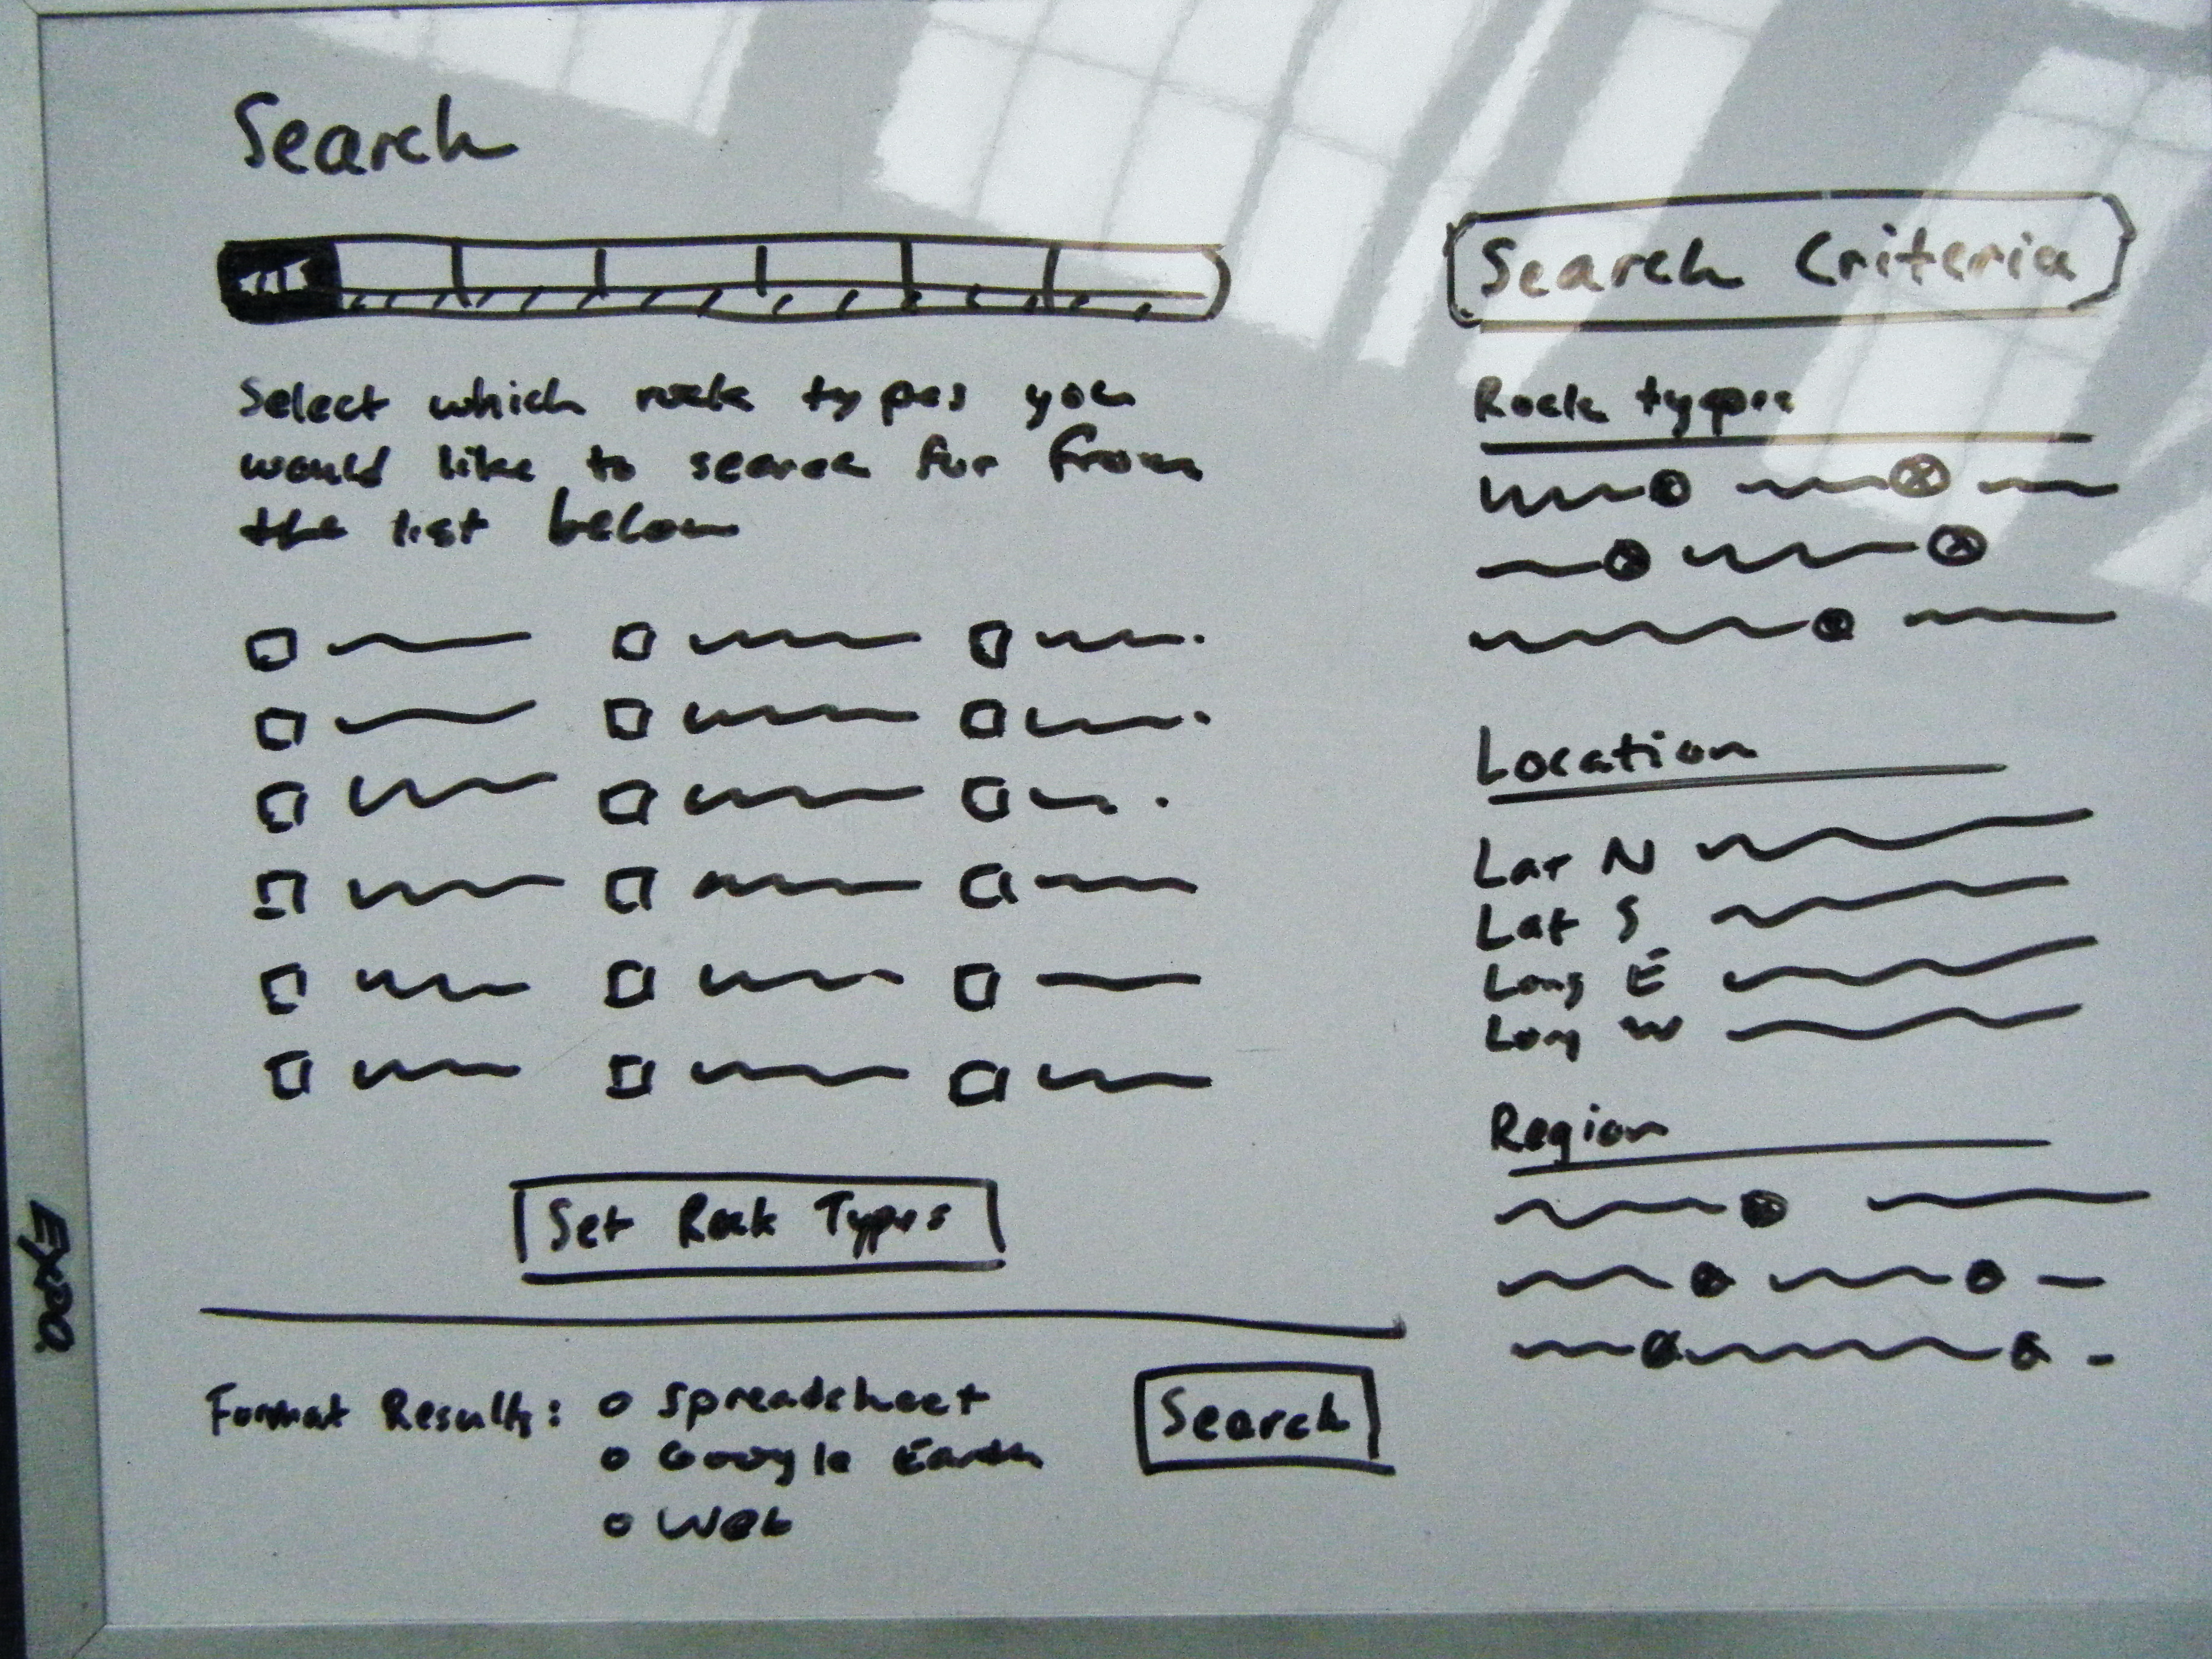 Search
Select which rock types you
would like to search for from
the list below
Set Rock Types
Format Results: o Spreadsheet
o Google Earth
o Web
Search
Search Criteria
Rock types
Location
Lat N
Lat S
Long E
Long W
Region
Expo